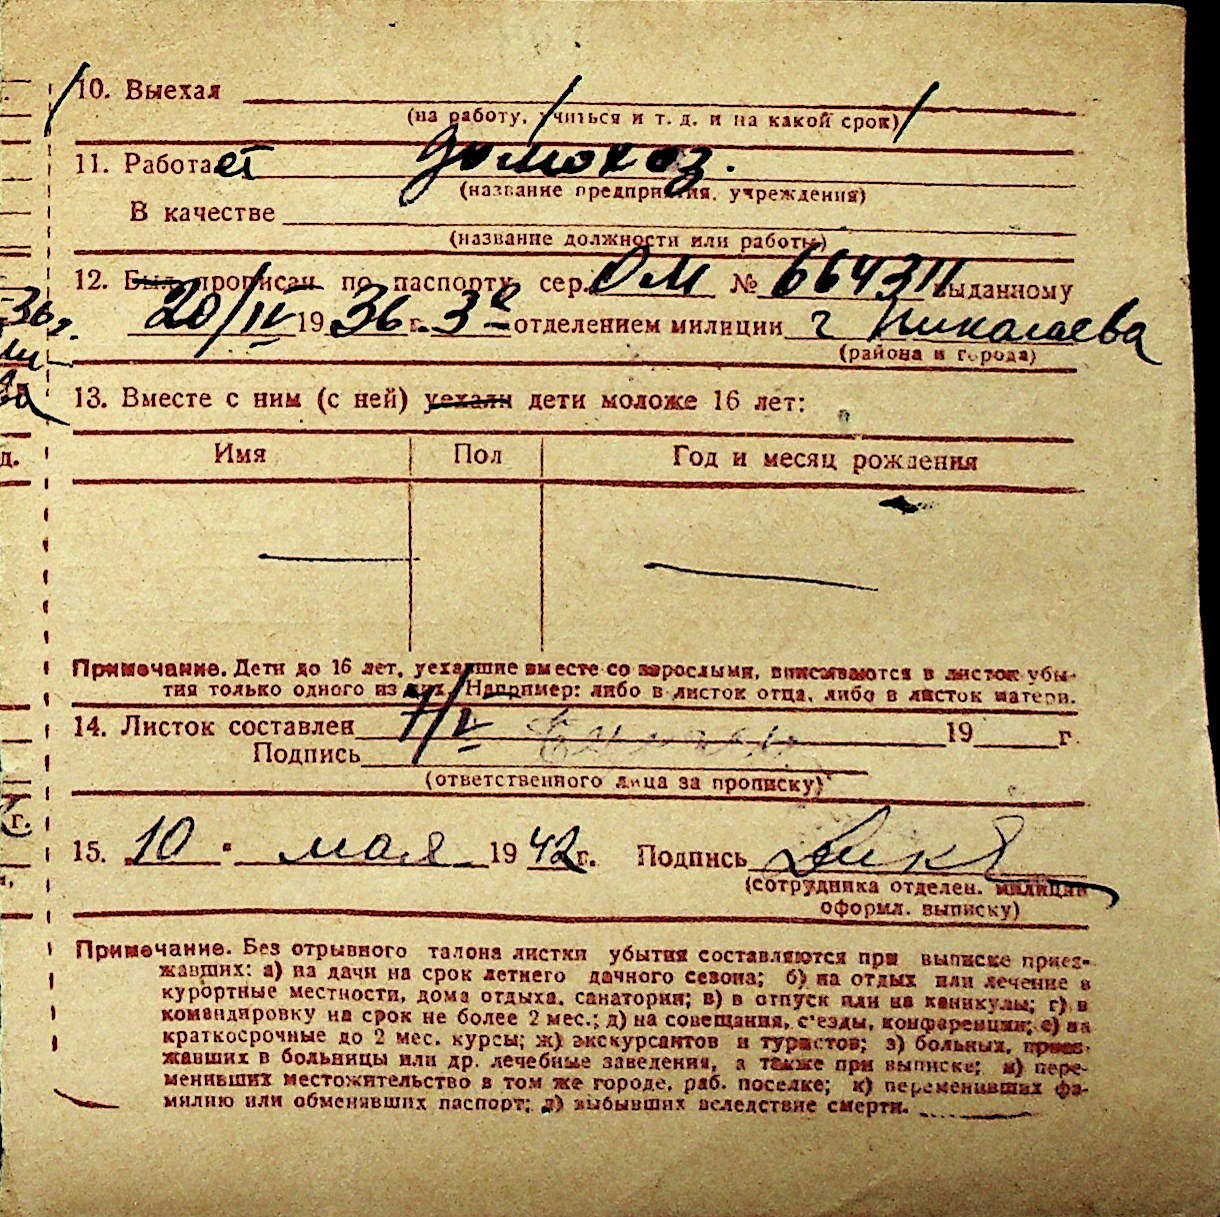 10. Выехал
(на работу, учиться и т. д. и на какой срок)
11. Работает домохоз.
(название предприятия, учреждения)
В качестве
(название должности или работы)
12. Был прописан по паспорту сер. ОМ № 664311 выданному
20/IV 1936 г. 3е отделением милиции г Николаева
(района и города)
13. Вместе с ним (с ней) уехали дети моложе 16 лет:
Имя Пол Год и месяц рождения
Примечание. Дети до 16 лет, уехавшие вместе со взрослыми, вписываются в листок убы-
тия только одного из них. Например: либо в листок отца, либо в листок матери.
14. Листок составлен 7/V 19 г.
Подпись
(ответственного лица за прописку)
15. 10 " мая 1942 г. Подпись
(сотрудника отделен. милиции
оформл. выписку)
Примечание. Без отрывного талона листки убытия составляются при выписке приез-
жавших: а) на дачи на срок летнего дачного сезона; б) на отдых или лечение в
курортные местности, дома отдыха, санатории; в) в отпуск или на каникулы; г) в
командировку на срок не более 2 мес.; д) на совещания, с'езды, конференции; е) на
краткосрочные до 2 мес. курсы; ж) экскурсантов и туристов; з) больных, приез-
жавших в больницы или др. лечебные заведения, а также при выписке; и) пере-
менивших местожительство в том же городе, раб. поселке; к) переменивших фа-
милию или обменявших паспорт; л) выбывших вследствие смерти.